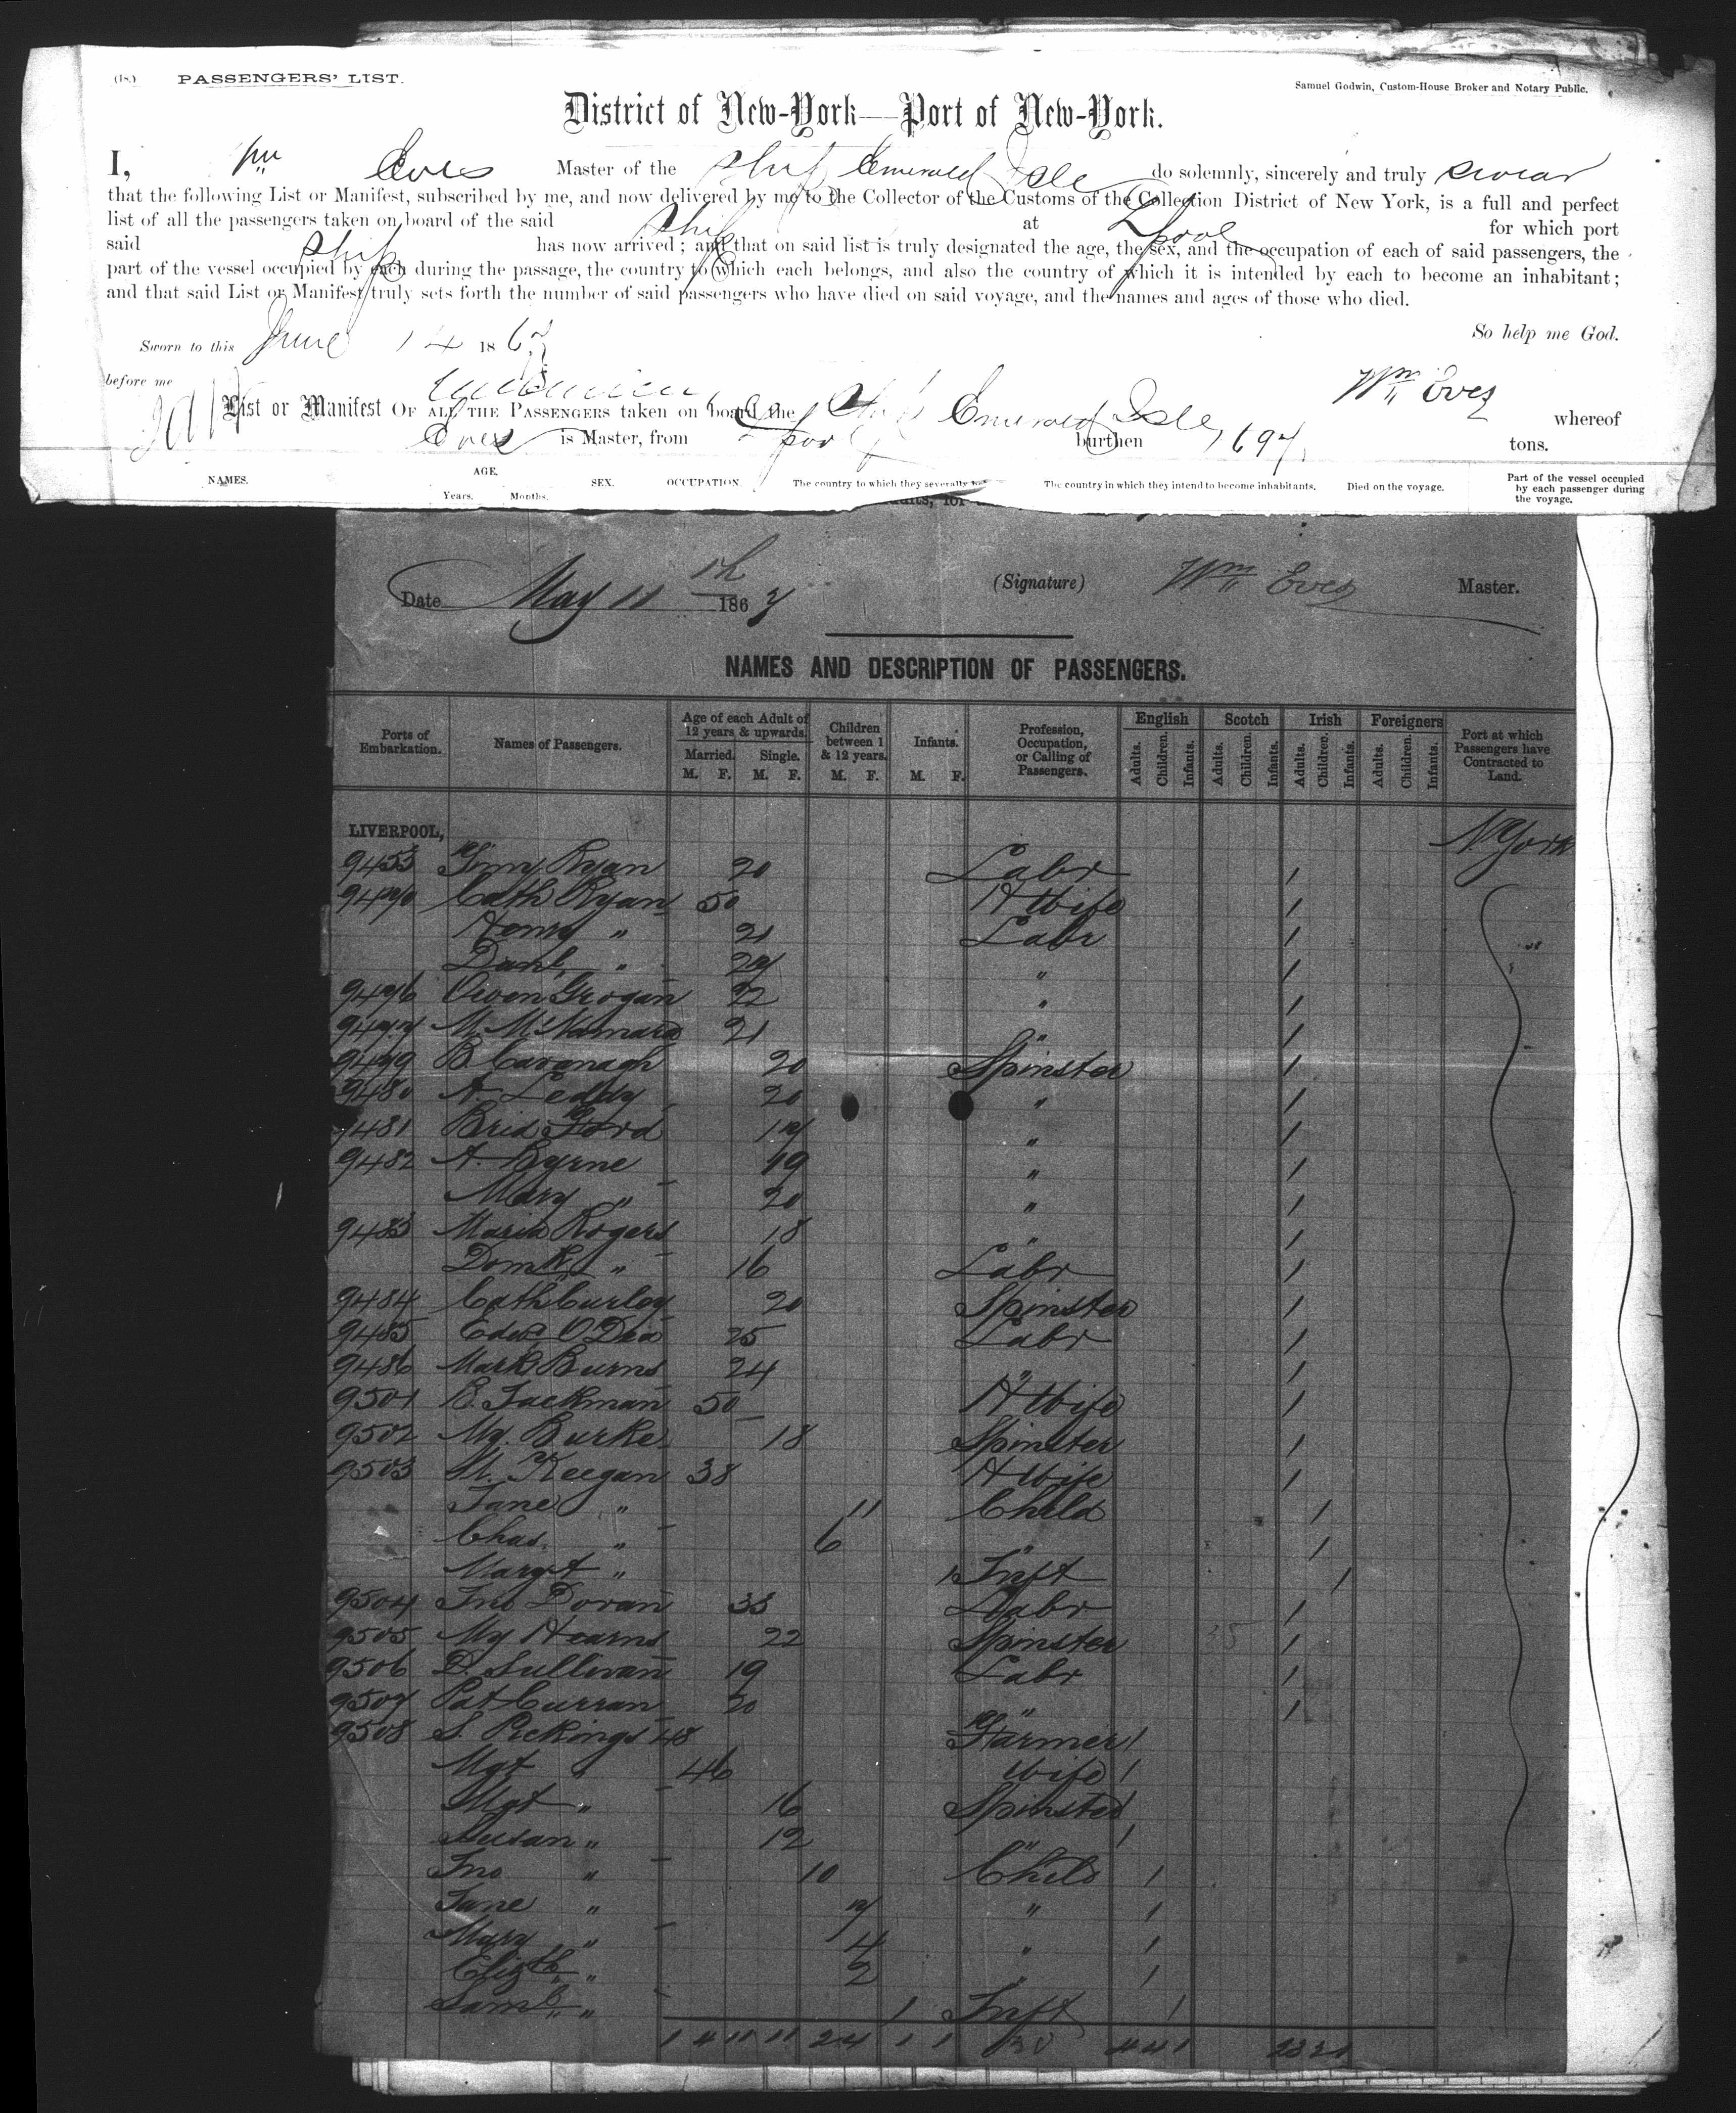 (18.) PASSENGERS' LIST.
Samuel Godwin, Custom-House Broker and Notary Public.
District of New-York—Port of New-York.
I, Wm Eves Master of the Ship Emerald Isle do solemnly, sincerely and truly swear
that the following List or Manifest, subscribed by me, and now delivered by me to the Collector of the Customs of the Collection District of New York, is a full and perfect
list of all the passengers taken on board of the said Ship at Lpool for which port
said Ship has now arrived; and that on said list is truly designated the age, the sex, and the occupation of each of said passengers, the
part of the vessel occupied by each during the passage, the country to which each belongs, and also the country of which it is intended by each to become an inhabitant;
and that said List or Manifest truly sets forth the number of said passengers who have died on said voyage, and the names and ages of those who died.
So help me God.
Sworn to this June 14 1867
before me
Wm Eves
List or Manifest OF ALL THE PASSENGERS taken on board the Ship Emerald Isle whereof
Eves is Master, from Lpool burthen 1694 tons.
NAMES. AGE. Years. Months. SEX. OCCUPATION. The country to which they severally The country in which they intend to become inhabitants. Died on the voyage. Part of the vessel occupied by each passenger during the voyage.
Date May 11th 1867 (Signature) Wm Eves Master.
NAMES AND DESCRIPTION OF PASSENGERS.
Ports of Embarkation. Names of Passengers. Age of each Adult of 12 years & upwards. Married. M. F. Single. M. F. Children between 1 & 12 years. M. F. Infants. M. F. Profession, Occupation, or Calling of Passengers. English Adults. Children. Infants. Scotch Adults. Children. Infants. Irish Adults. Children. Infants. Foreigners Adults. Children. Infants. Port at which Passengers have Contracted to Land.
LIVERPOOL, N. York
9453 Timy Ryan 20 Labr 1
9470 Cath Ryan 50 H Wife 1
Henry " 21 Labr 1
Danl " 27 " 1
9476 Owen Grogan 22 " 1
9477 M. McNamara 21 " 1
9479 B Cavanagh 20 Spinster 1
9480 A. Leddy 20 " 1
9481 Brid Ford 17 " 1
9482 A. Byrne 19 " 1
Mary " 20 " 1
9483 Maria Rogers 18 " 1
Domk " 16 Labr 1
9484 Cath Curley 20 Spinster 1
9485 Edwd O'Dea 25 Labr 1
9486 Mark Burns 24 " 1
9501 B. Jackman 50 H Wife 1
9502 My. Burke 18 Spinster 1
9503 M. Keegan 38 H Wife 1
Jane " 11 Child 1
Chas. " 6 " 1
Margt " 1 Inft 1
9504 Jno Doran 33 Labr 1
9505 My Hearns 22 Spinster 1
9506 D. Sullivan 19 Labr 1
9507 Pat Curran 20 " 1
9508 S. Pickings 48 Farmer 1
Mgt " 46 Wife 1
Mgt " 16 Spinster 1
Susan " 12 " 1
Jno " 10 Child 1
Jane " 7 " 1
Mary " 4 " 1
Elizth " 2 " 1
Saml " 1 Inft 1
1 4 11 11 2 4 1 1 4 4 1 23 2 1